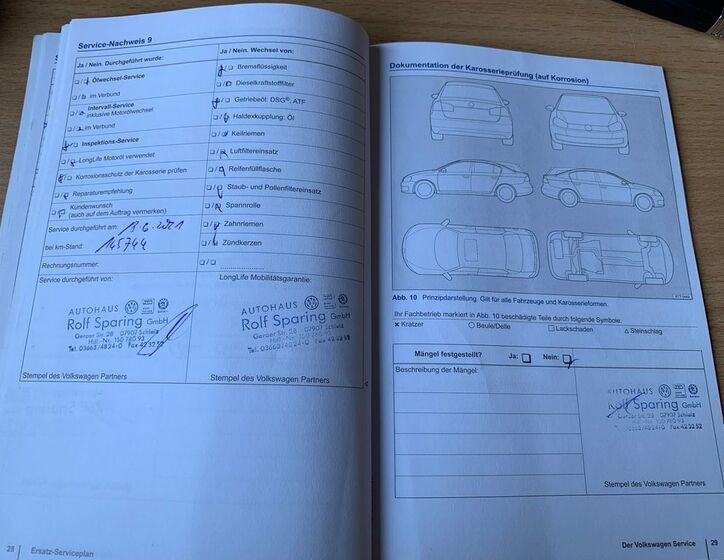 Service-Nachweis 9
Ja / Nein. Durchgeführt wurde:
Ölwechsel-Service
im Verbund
Intervall-Service
inklusive Motorölwechsel
im Verbund
Inspektions-Service
LongLife Motoröl verwendet
Korrosionsschutz der Karosserie prüfen
Reparaturempfehlung
Kundenwunsch
(auch auf dem Auftrag vermerken)
Service durchgeführt am:
bei km-Stand: 145744
Rechnungsnummer:
Service durchgeführt von:
AUTOHAUS
Rolf Sparing GmbH
Geraer Str. 28 07907 Schleiz
Tel. 03663/4824-0 Fax 42 32 52
Stempel des Volkswagen Partners
Ja / Nein. Wechsel von:
Bremsflüssigkeit
Dieselkraftstofffilter
Getriebeöl: DSG®, ATF
Haldexkupplung: Öl
Keilriemen
Luftfiltereinsatz
Reifenfüllflasche
Staub- und Pollenfiltereinsatz
Spannrolle
Zahnriemen
Zündkerzen
LongLife Mobilitätsgarantie:
AUTOHAUS
Rolf Sparing GmbH
Geraer Str. 28 07907 Schleiz
Tel. 03663/4824-0 Fax 42 32 52
Stempel des Volkswagen Partners
28 Ersatz-Serviceplan
Dokumentation der Karosserieprüfung (auf Korrosion)
Abb. 10 Prinzipdarstellung. Gilt für alle Fahrzeuge und Karosserieformen.
Ihr Fachbetrieb markiert in Abb. 10 beschädigte Teile durch folgende Symbole.
× Kratzer ○ Beule/Delle □ Lackschaden △ Steinschlag
Mängel festgestellt? Ja: Nein:
Beschreibung der Mängel:
AUTOHAUS
Rolf Sparing GmbH
Geraer Str. 28 07907 Schleiz
03663/4824-0 Fax 42 32 52
Stempel des Volkswagen Partners
Der Volkswagen Service 29